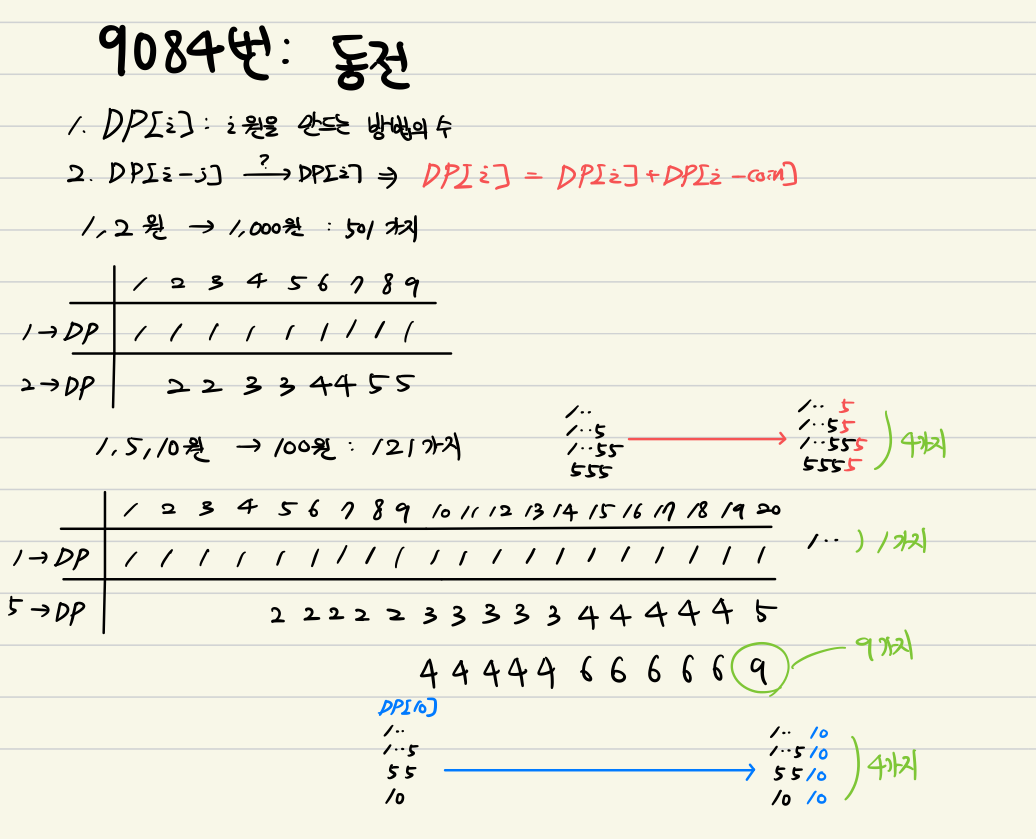 9084번: 동전
1. DP[i] : i원을 만드는 방법의 수
2. DP[i-j] ?→ DP[i] ⇒ DP[i] = DP[i]+DP[i-coin]
1, 2원 → 1,000원 : 501가지
1 2 3 4 5 6 7 8 9
1→DP 1 1 1 1 1 1 1 1 1
2→DP 2 2 3 3 4 4 5 5
1‥ 1‥ 5
1‥5 1‥55
1‥55 1‥555
555 5555
4가지
1, 5, 10원 → 100원 : 121가지
1 2 3 4 5 6 7 8 9 10 11 12 13 14 15 16 17 18 19 20
1→DP 1 1 1 1 1 1 1 1 1 1 1 1 1 1 1 1 1 1 1 1 1‥ ) 1가지
5→DP 2 2 2 2 2 3 3 3 3 3 4 4 4 4 4 5
4 4 4 4 4 6 6 6 6 6 9 9가지
DP[10]
1‥ 1‥ 10
1‥5 1‥5 10
5 5 5 5 10
10 10 10
4가지